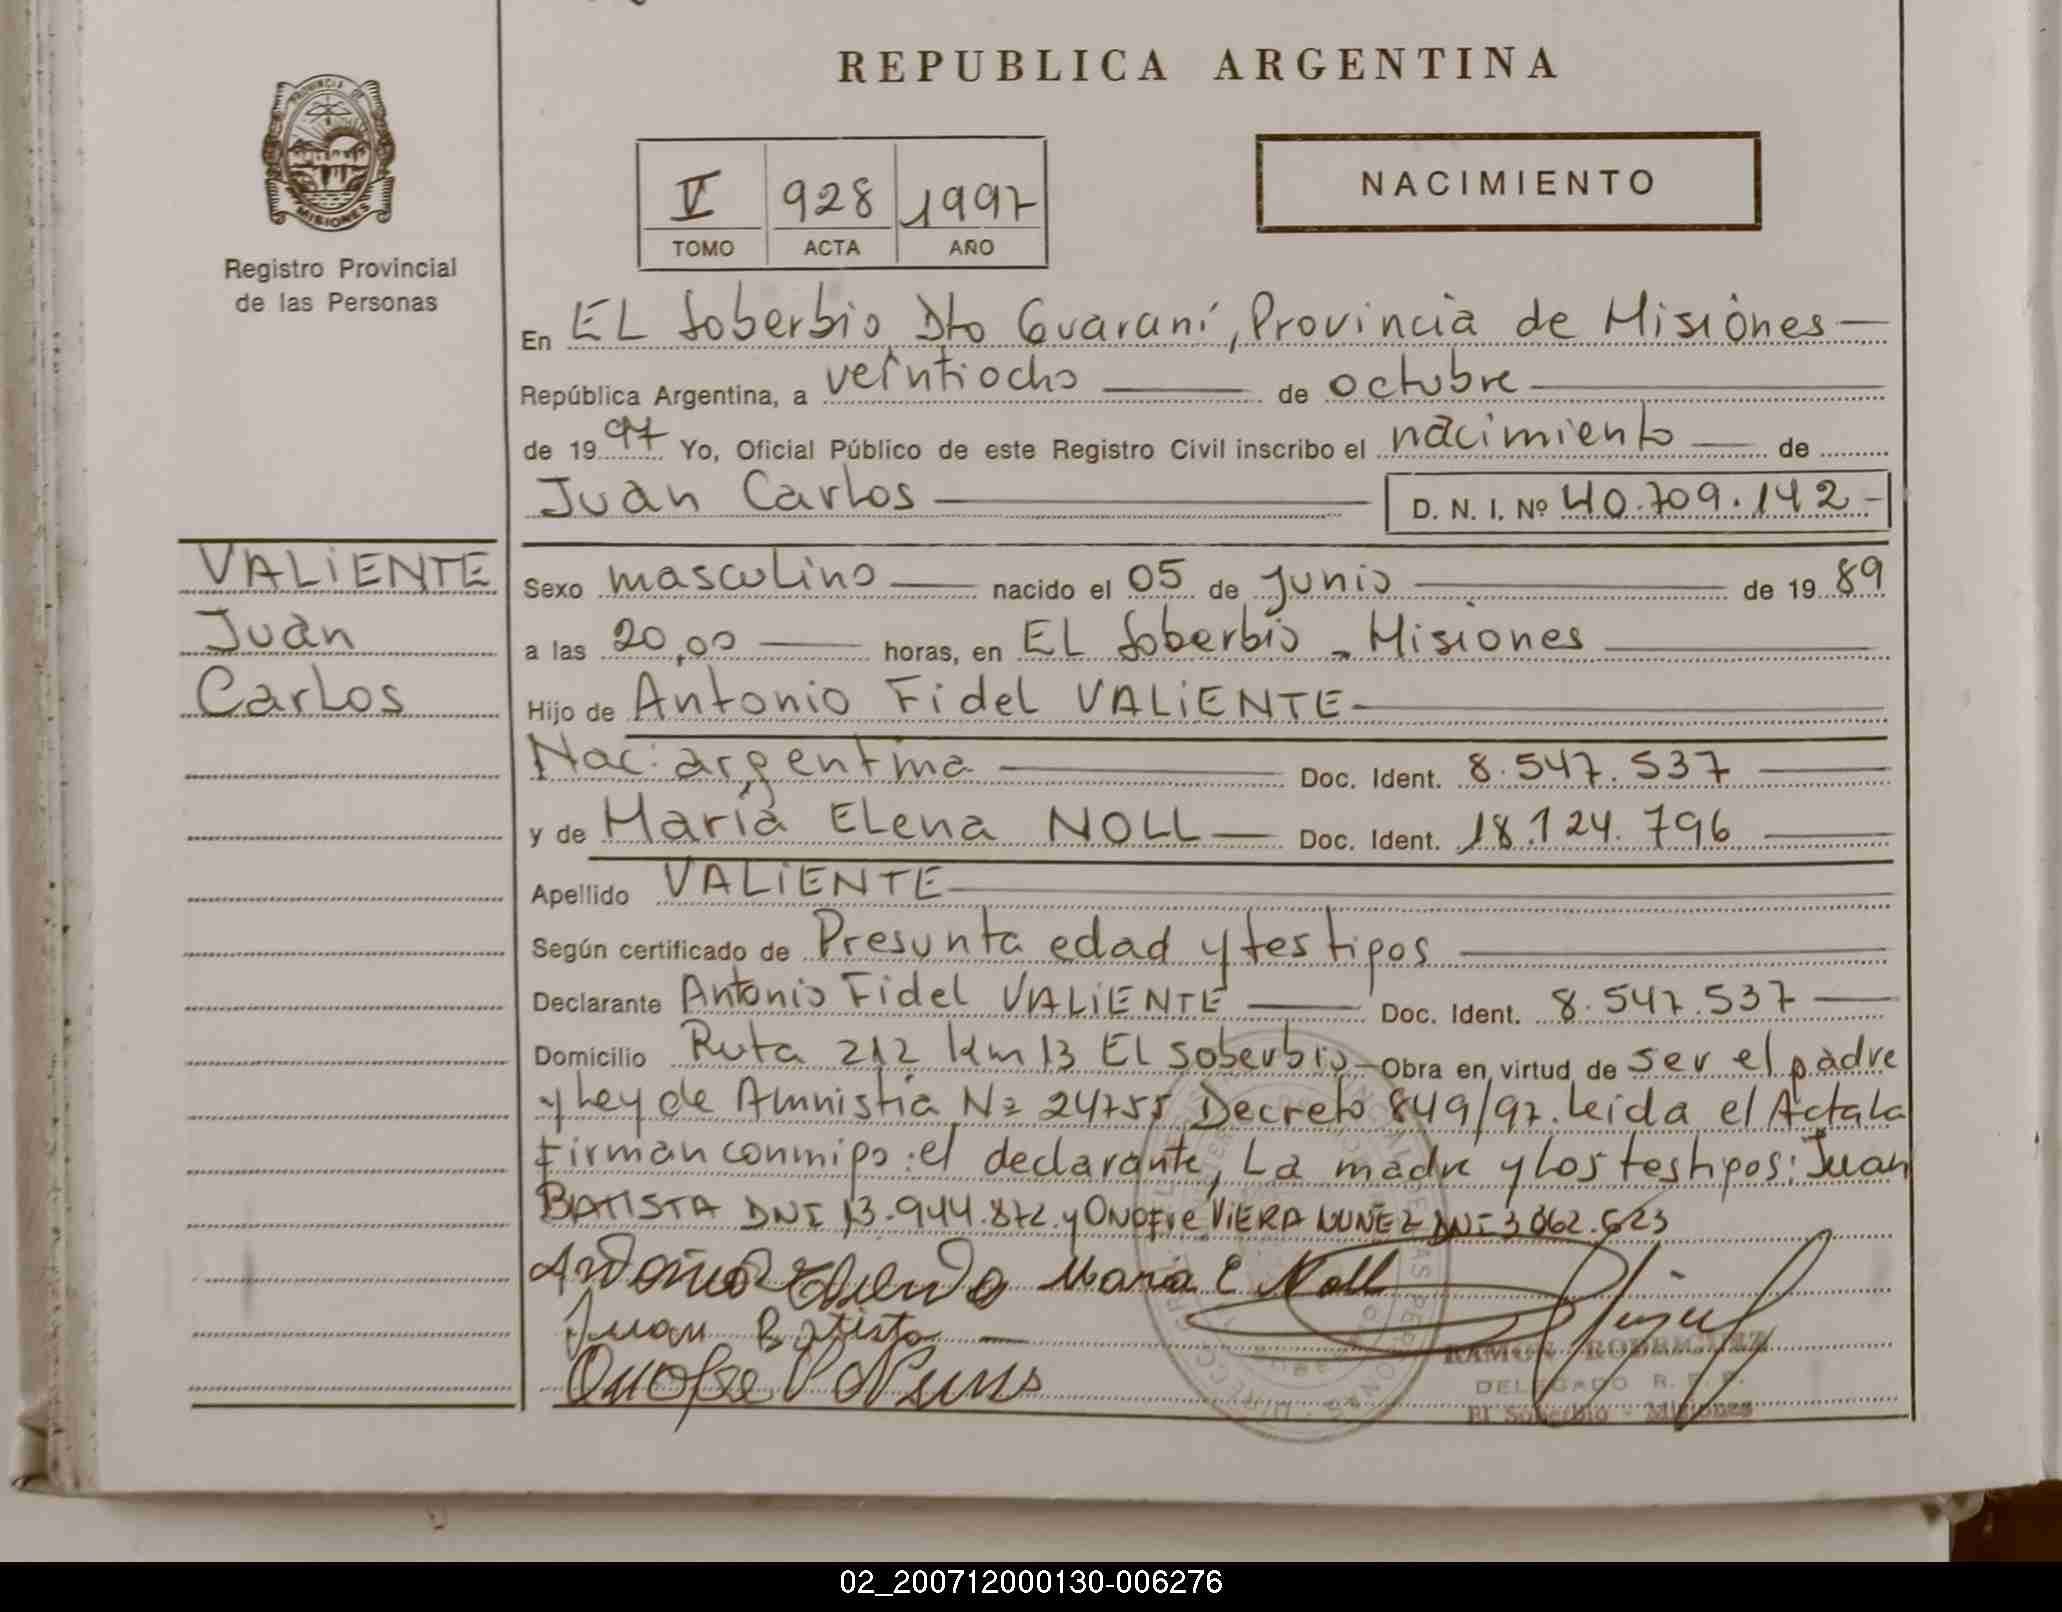 REPUBLICA ARGENTINA
PROVINCIA DE
MISIONES
Registro Provincial
de las Personas
V 928 1997
TOMO ACTA AÑO
NACIMIENTO
En EL Soberbio, Dto Guaraní, Provincia de Misiones
República Argentina, a veintiocho de octubre
de 1997 Yo, Oficial Público de este Registro Civil inscribo el nacimiento de
Juan Carlos D. N. I. Nº 40.709.142
VALIENTE
Juan
Carlos
Sexo masculino nacido el 05 de junio de 1989
a las 20,00 horas, en EL Soberbio - Misiones
Hijo de Antonio Fidel VALIENTE
Nac: argentina Doc. Ident. 8.547.537
y de María ELena NOLL Doc. Ident. 18.124.796
Apellido VALIENTE
Según certificado de Presunta edad y testigos
Declarante Antonio Fidel VALIENTE Doc. Ident. 8.547.537
Domicilio Ruta 212 km 13 EL Soberbio Obra en virtud de ser el padre
y Ley de Amnistía Nº 24755 Decreto 849/97. Leida el Acta la
Firman conmigo: el declarante, La madre y los testigos: Juan
BATISTA DNI 13.944.872. y Onofre VIERA NUNEZ DNI 3062.623
Maria E Noll
Juan Batista
Onofre V
RAMON RODRIGUEZ
DELEGADO R. P. P.
El Soberbio - Misiones
02_200712000130-006276